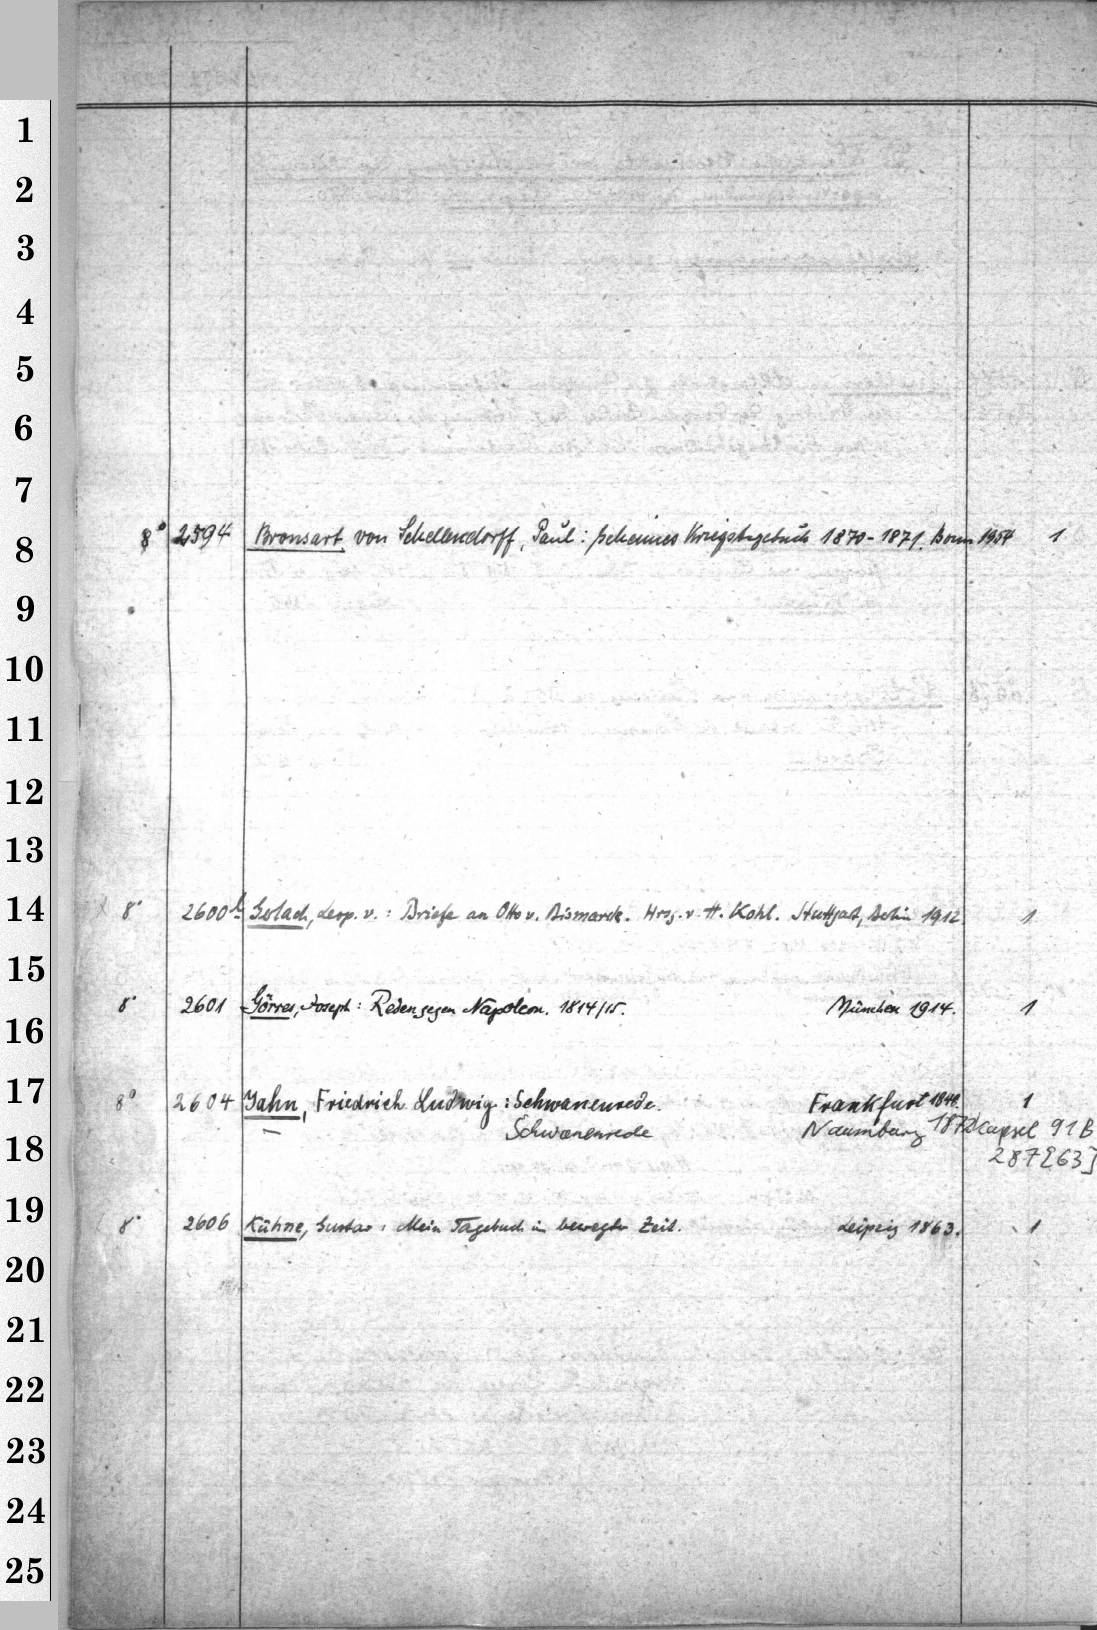 1
2
3
4
5
6
7
8
8° 2594 Bronsart von Schellendorff, Paul: Geheimes Kriegstagebuch 1870-1871. Bonn 1954 1
9
10
11
12
13
14
8° 2600 b Gerlach, Leop. v.: Briefe an Otto v. Bismarck. Hrsg. v. H. Kohl. Stuttgart, Berlin 1912. 1
15
8° 2601 Görres, Joseph: Reden gegen Napoleon. 1814/15. München 1914. 1
16
17
8° 2604 Jahn, Friedrich Ludwig: Schwanenrede. Frankfurt 1848. 1
— Schwanenrede Naumburg 1872 Kapsel 91 B
18
287 [63]
19
8° 2606 Kühne, Gustav: Mein Tagebuch in bewegter Zeit. Leipzig 1863. 1
20
21
22
23
24
25